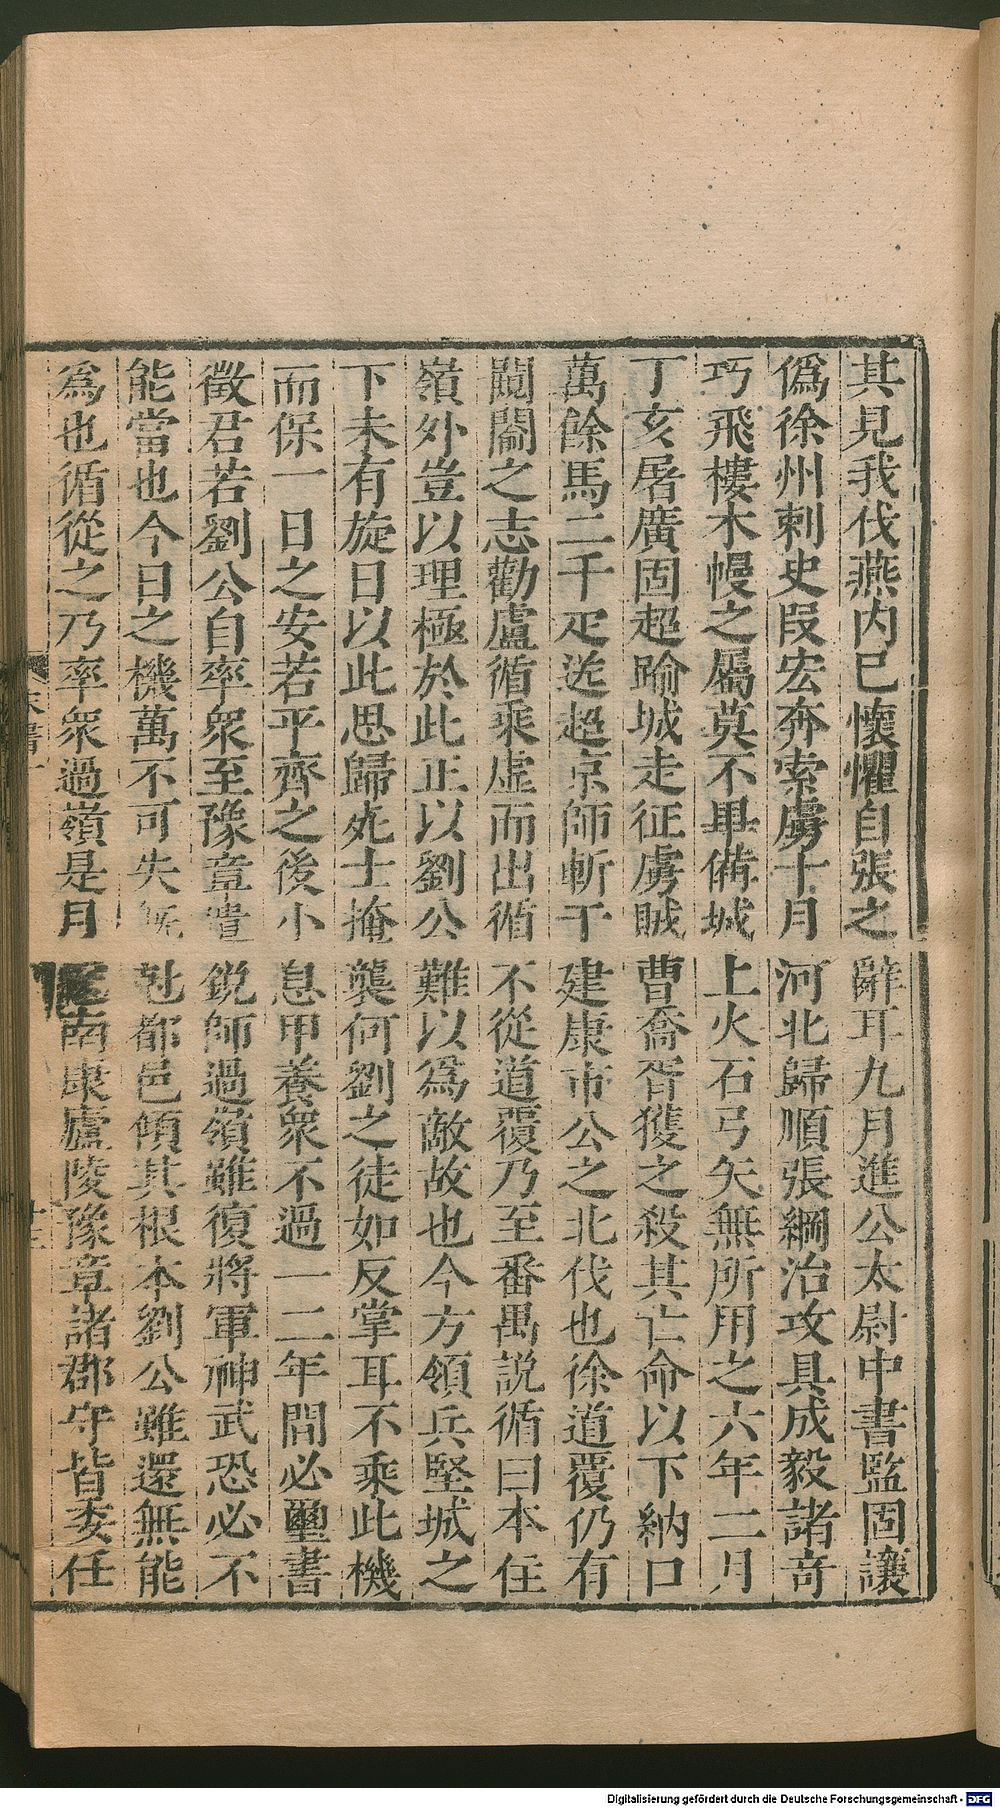 其見我伐燕内已懷懼自張之辭耳九月進公太尉中書監固讓
僞徐州刺史叚宏奔索虜十月河北歸順張綱治攻具成毅諸竒
巧飛樓木幔之屬莫不畢備城上火石弓矢無所用之六年二月
丁亥屠廣固超踰城走征虜賊曹喬胥獲之殺其亡命以下納口
萬餘馬二千疋送超京師斬于建康市公之北伐也徐道覆仍有
闚𨵦之志勸盧循乘虛而出循不從道覆乃至番禺説循曰本住
嶺外豈以理極於此正以劉公難以爲敵故也今方頓兵堅城之
下未有旋日以此思歸死士掩襲何劉之徒如反掌耳不乘此機
而保一日之安若平齊之後小息甲養衆不過一二年間必璽書
徵君若劉公自率衆至豫章遣鋭師過嶺雖復將軍神武恐必不
能當也今日之機萬不可失旣尅都邑傾其根本劉公雖還無能
爲也循從之乃率衆過嶺是月 南康廬陵豫章諸郡守皆委任
宋書一
十三
Digitalisierung gefördert durch die Deutsche Forschungsgemeinschaft - DFG